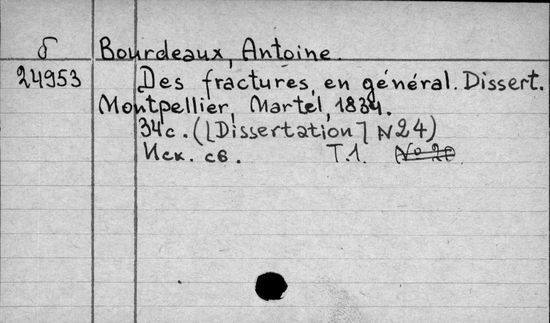 б Bourdeaux, Antoine.
24953 Des fractures en général. Dissert.
Montpellier, Martel, 1834.
34c. ([Dissertation] N24)
Иск. св. Т.1. No 20